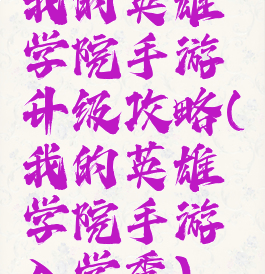 我的英雄
学院手游
升级攻略(
我的英雄
学院手游
入学季)